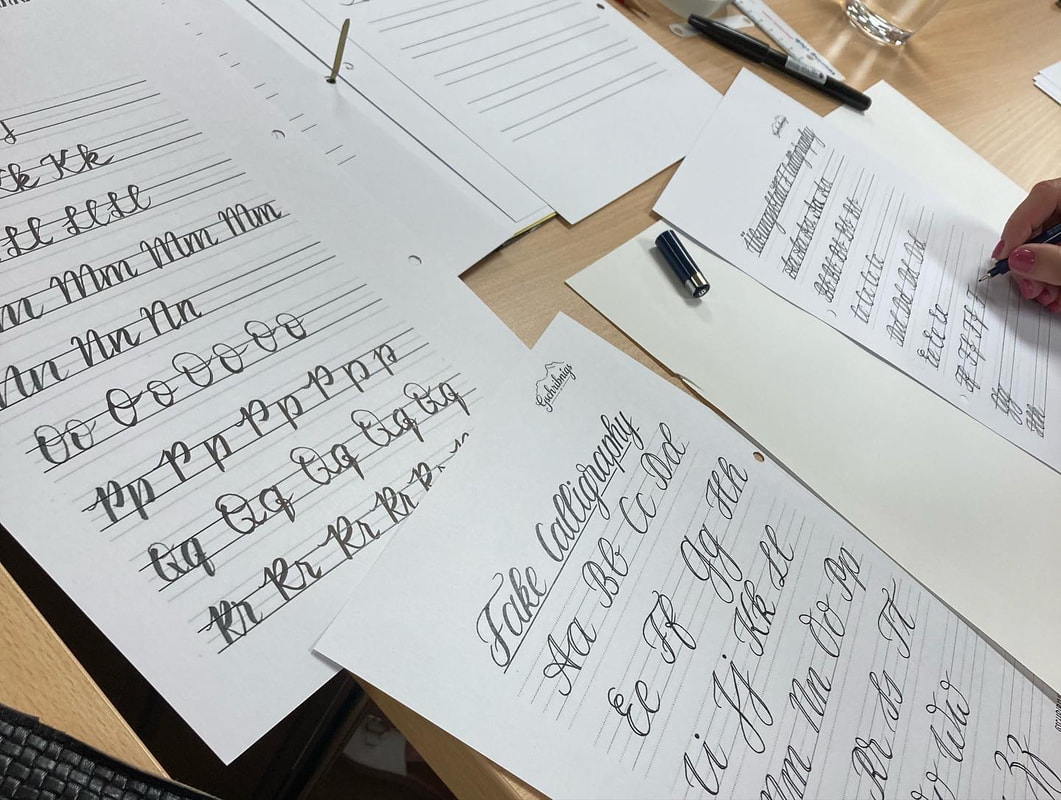 Kk Kk
Ll Ll Ll
m Mm Mm Mm
Nn Nn Nn
Oo Oo Oo Oo
Pp Pp Pp Pp Pp
Qq Qq Qq Qq Qq
Rr Rr Rr Rr
Gschribnigs
Fake Calligraphy
Aa Bb Cc Dd
Ee Ff Gg Hh
Ii Jj Kk Ll
Mm Nn Oo Pp
Rr Ss Tt
Vv Ww
Zz
Übungsblatt Fake Calligraphy
Aa Aa Aa Aa Aa
Bb Bb Bb Bb Bb
Cc Cc Cc Cc
Dd Dd Dd Dd
Ee Ee Ee
Ff Ff Ff
Gg
Hh